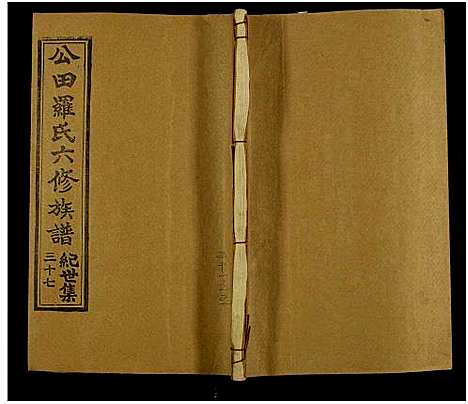 公田羅氏六修族譜
紀世集
三十七